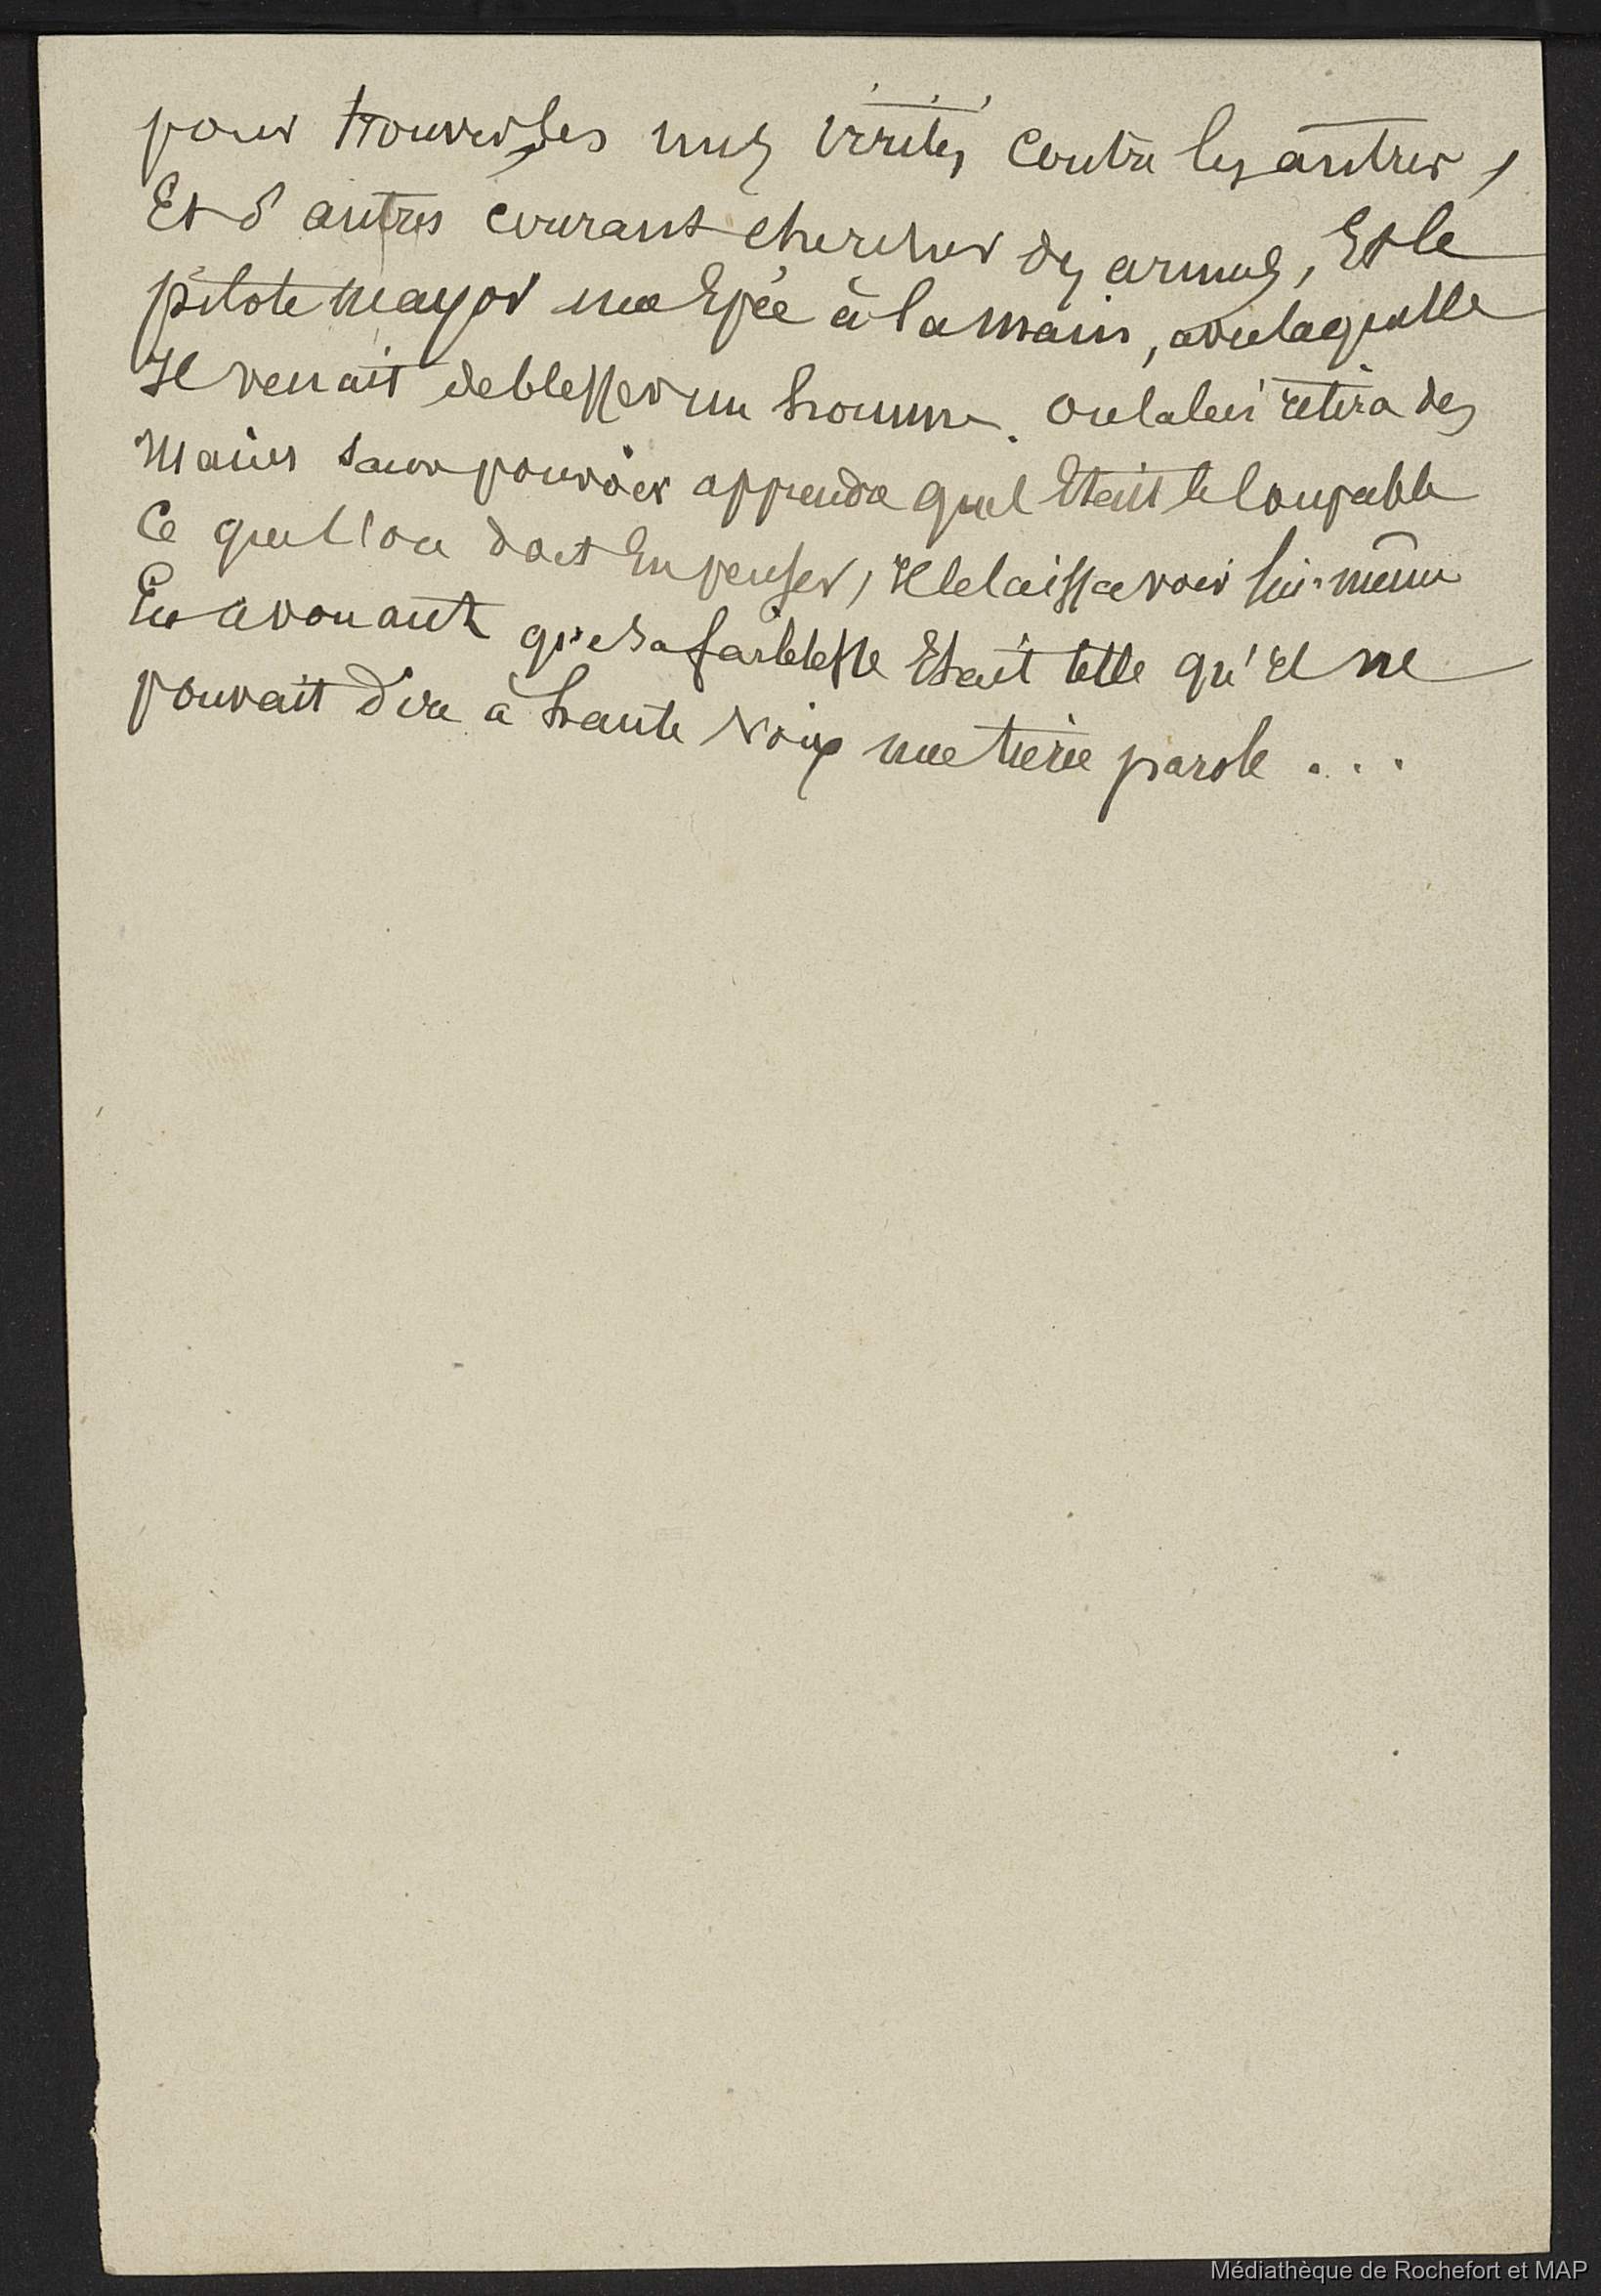 pour trouver les uns irrités contre les autres,
Et d'autres courant chercher des armes, Et le
pilote mayor une Epée à la main, avec laquelle
Il venait de blesser un homme. On la lui retira des
mains sans pouvoir apprendre quel Etait le coupable
Ce que l'on doit En penser, Il le laissa voir lui-même
En avouant que sa faiblesse Etait telle qu'il ne
pouvait dire à haute voix une parole ...
Médiathèque de Rochefort et MAP